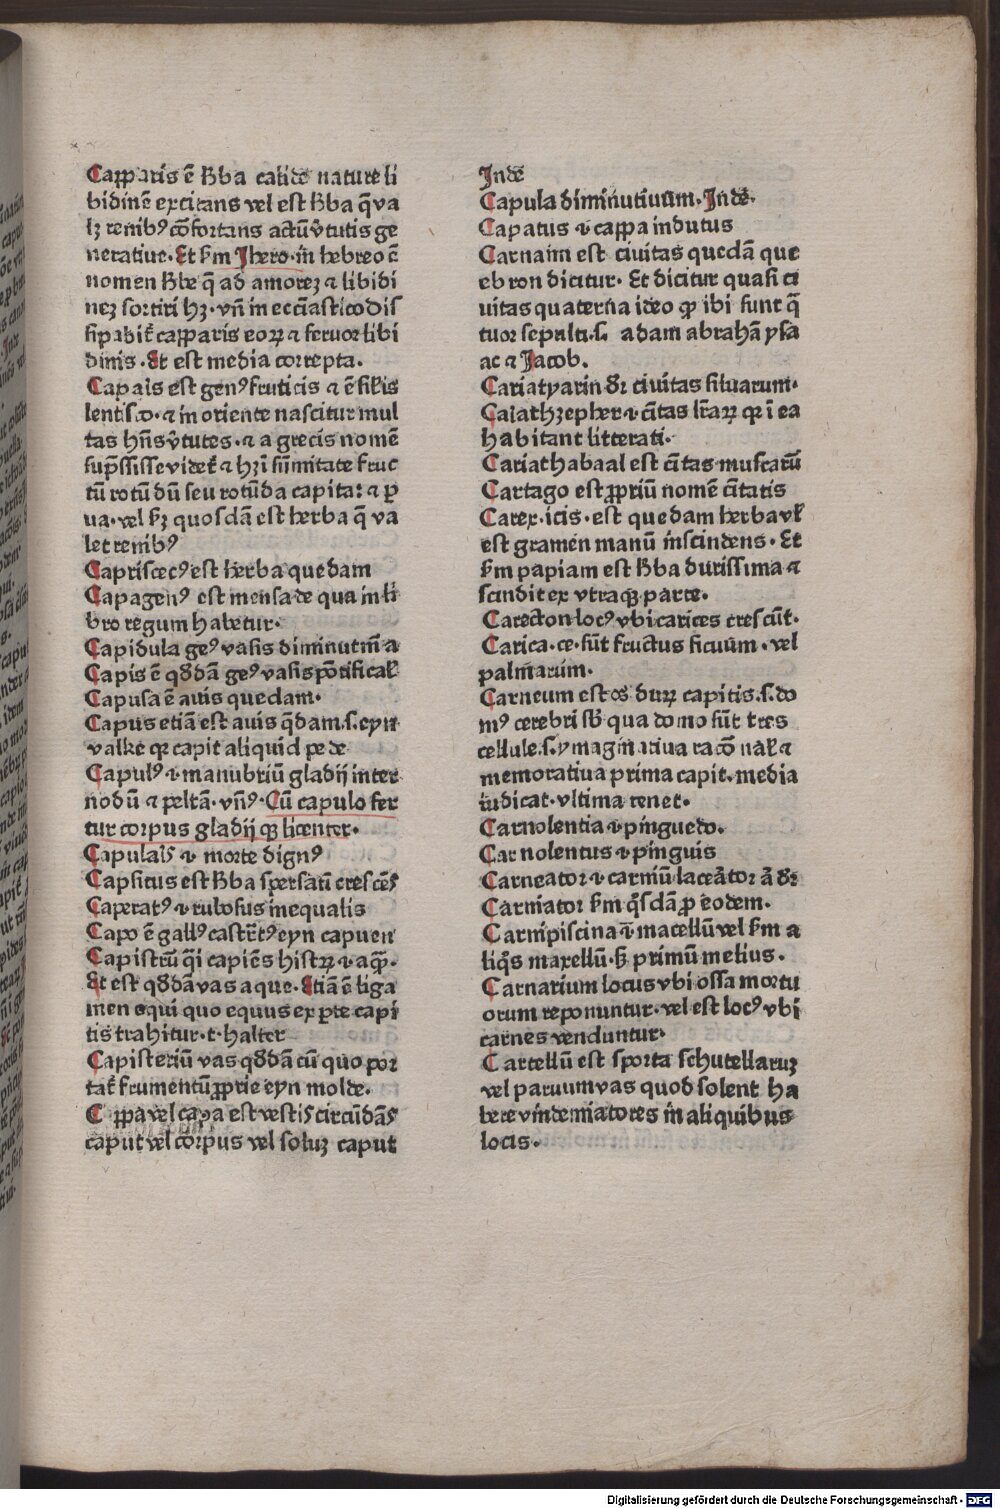 Capparis ē hba calide nature li
bidinē excitans vel est hba q̄ va
lꝫ renibꝰ cōfortans actū v̄tutis ge
neratiue. Et ẜm Jhero. in hebreo ē
nomen hbe q̄ ad amorez ⁊ libidi
nez sortiri hꝫ. vn̄ in ecciastico dis
sipabit̄ capparis eoꝝ ⁊ feruor libi
dinis. Et est media correpta.
Capais est genꝰ fruticis ⁊ ē sil̄is
lentisco. ⁊ in oriente nascitur mul
tas hn̄s v̄tutes. ⁊ a grecis nomē
sup̄ssisse videt̄ ⁊ hꝫ ī sūmitate fruc
tū rotū dū seu rotūda capita: ⁊ ꝑ
ua. vel ẜꝫ quosdā est herba q̄ va
let renibꝰ
Capriscecꝰ est herba quedam
Capagenꝰ est mensa de qua in li
bro regum habetur.
Capidula geꝰ vasis diminutm̄ a
Capis ē qd̄dā geꝰ vasis pōtifical̄
Capusa ē auis quedam.
Capus etiā est auis q̄dam. s. eyn
valke qꝛ capit aliquid pede
Capulꝰ .i. manubriū gladij inter
nodū ⁊ peltā. vn̄ꝰ. Cū capulo fer
tur corpus gladij qꝫ licenter.
Capulais .i. morte dignꝰ
Capsitus est hba spersatū crescēs
Caperatꝰ .i. rubosus inequalis
Capo ē gallꝰ castr̄tꝰ eyn capuen
Capistrū q̄i capiēs histꝝ .i. aqꝫ.
Et est qd̄dā vas aque. Etiā ē liga
men equi quo equus ex ꝑte capi
tis trahitur. t. halter
Capisteriū vas qd̄dā cū quo por
tat̄ frumentū ꝓprie eyn molde.
C ppa vel capa est vestis circūdās
caput vel corpus vel soluꝫ caput
Jnde
Capula diminutiuum. Jnde.
Capatus .i. cappa indutus
Carnaim est ciuitas quedā que
ebron dicitur. Et dicitur quasi ci
uitas quaterna ideo ꝙ ibi sunt q̄
tuor sepulti. s. adam abrahā ysa
ac ⁊ Jacob.
Cariatyarin dꝛ ciuitas siluarum.
Caiathzepher .i. cītas lr̄aꝝ qꝛ ī ea
habitant litterati.
Cariathabaal est cītas muscarū
Cartago est ꝓpriū nomē cītatis
Carex. icis. est quedam herba vl̄
est gramen manū inscindens. Et
ẜm papiam est hba durissima ⁊
scindit ex vtraqꝫ parte.
Carecton locꝰ vbi carices crescūt.
Carica. ce. sūt fructus ficuum. vel
palmarum.
Carneum est os duꝝ capitis. s. do
mꝰ cerebri sb̄ qua domo sūt tres
cellule. s. ymaginatiua racōnal̄ ⁊
memoratiua prima capit. media
iudicat. vltima tenet.
Carnolentia .i. pinguedo.
Carnolentus .i. pinguis
Carneator .i. carniū laceātor ā dꝛ
Carniator ẜm q̄sdā ꝓ eodem.
Carnipiscina .i. macellū vel ẜm a
liq̄s maxellū. sꝫ primū melius.
Carnarium locus vbi ossa mortu
orum reponuntur. vel est locꝰ vbi
carnes venduntur.
Cartellū est sporta schutellaruꝫ
vel paruum vas quod solent ha
bere vindemiatores in aliquibus
locis.
Digitalisierung gefördert durch die Deutsche Forschungsgemeinschaft - DFG